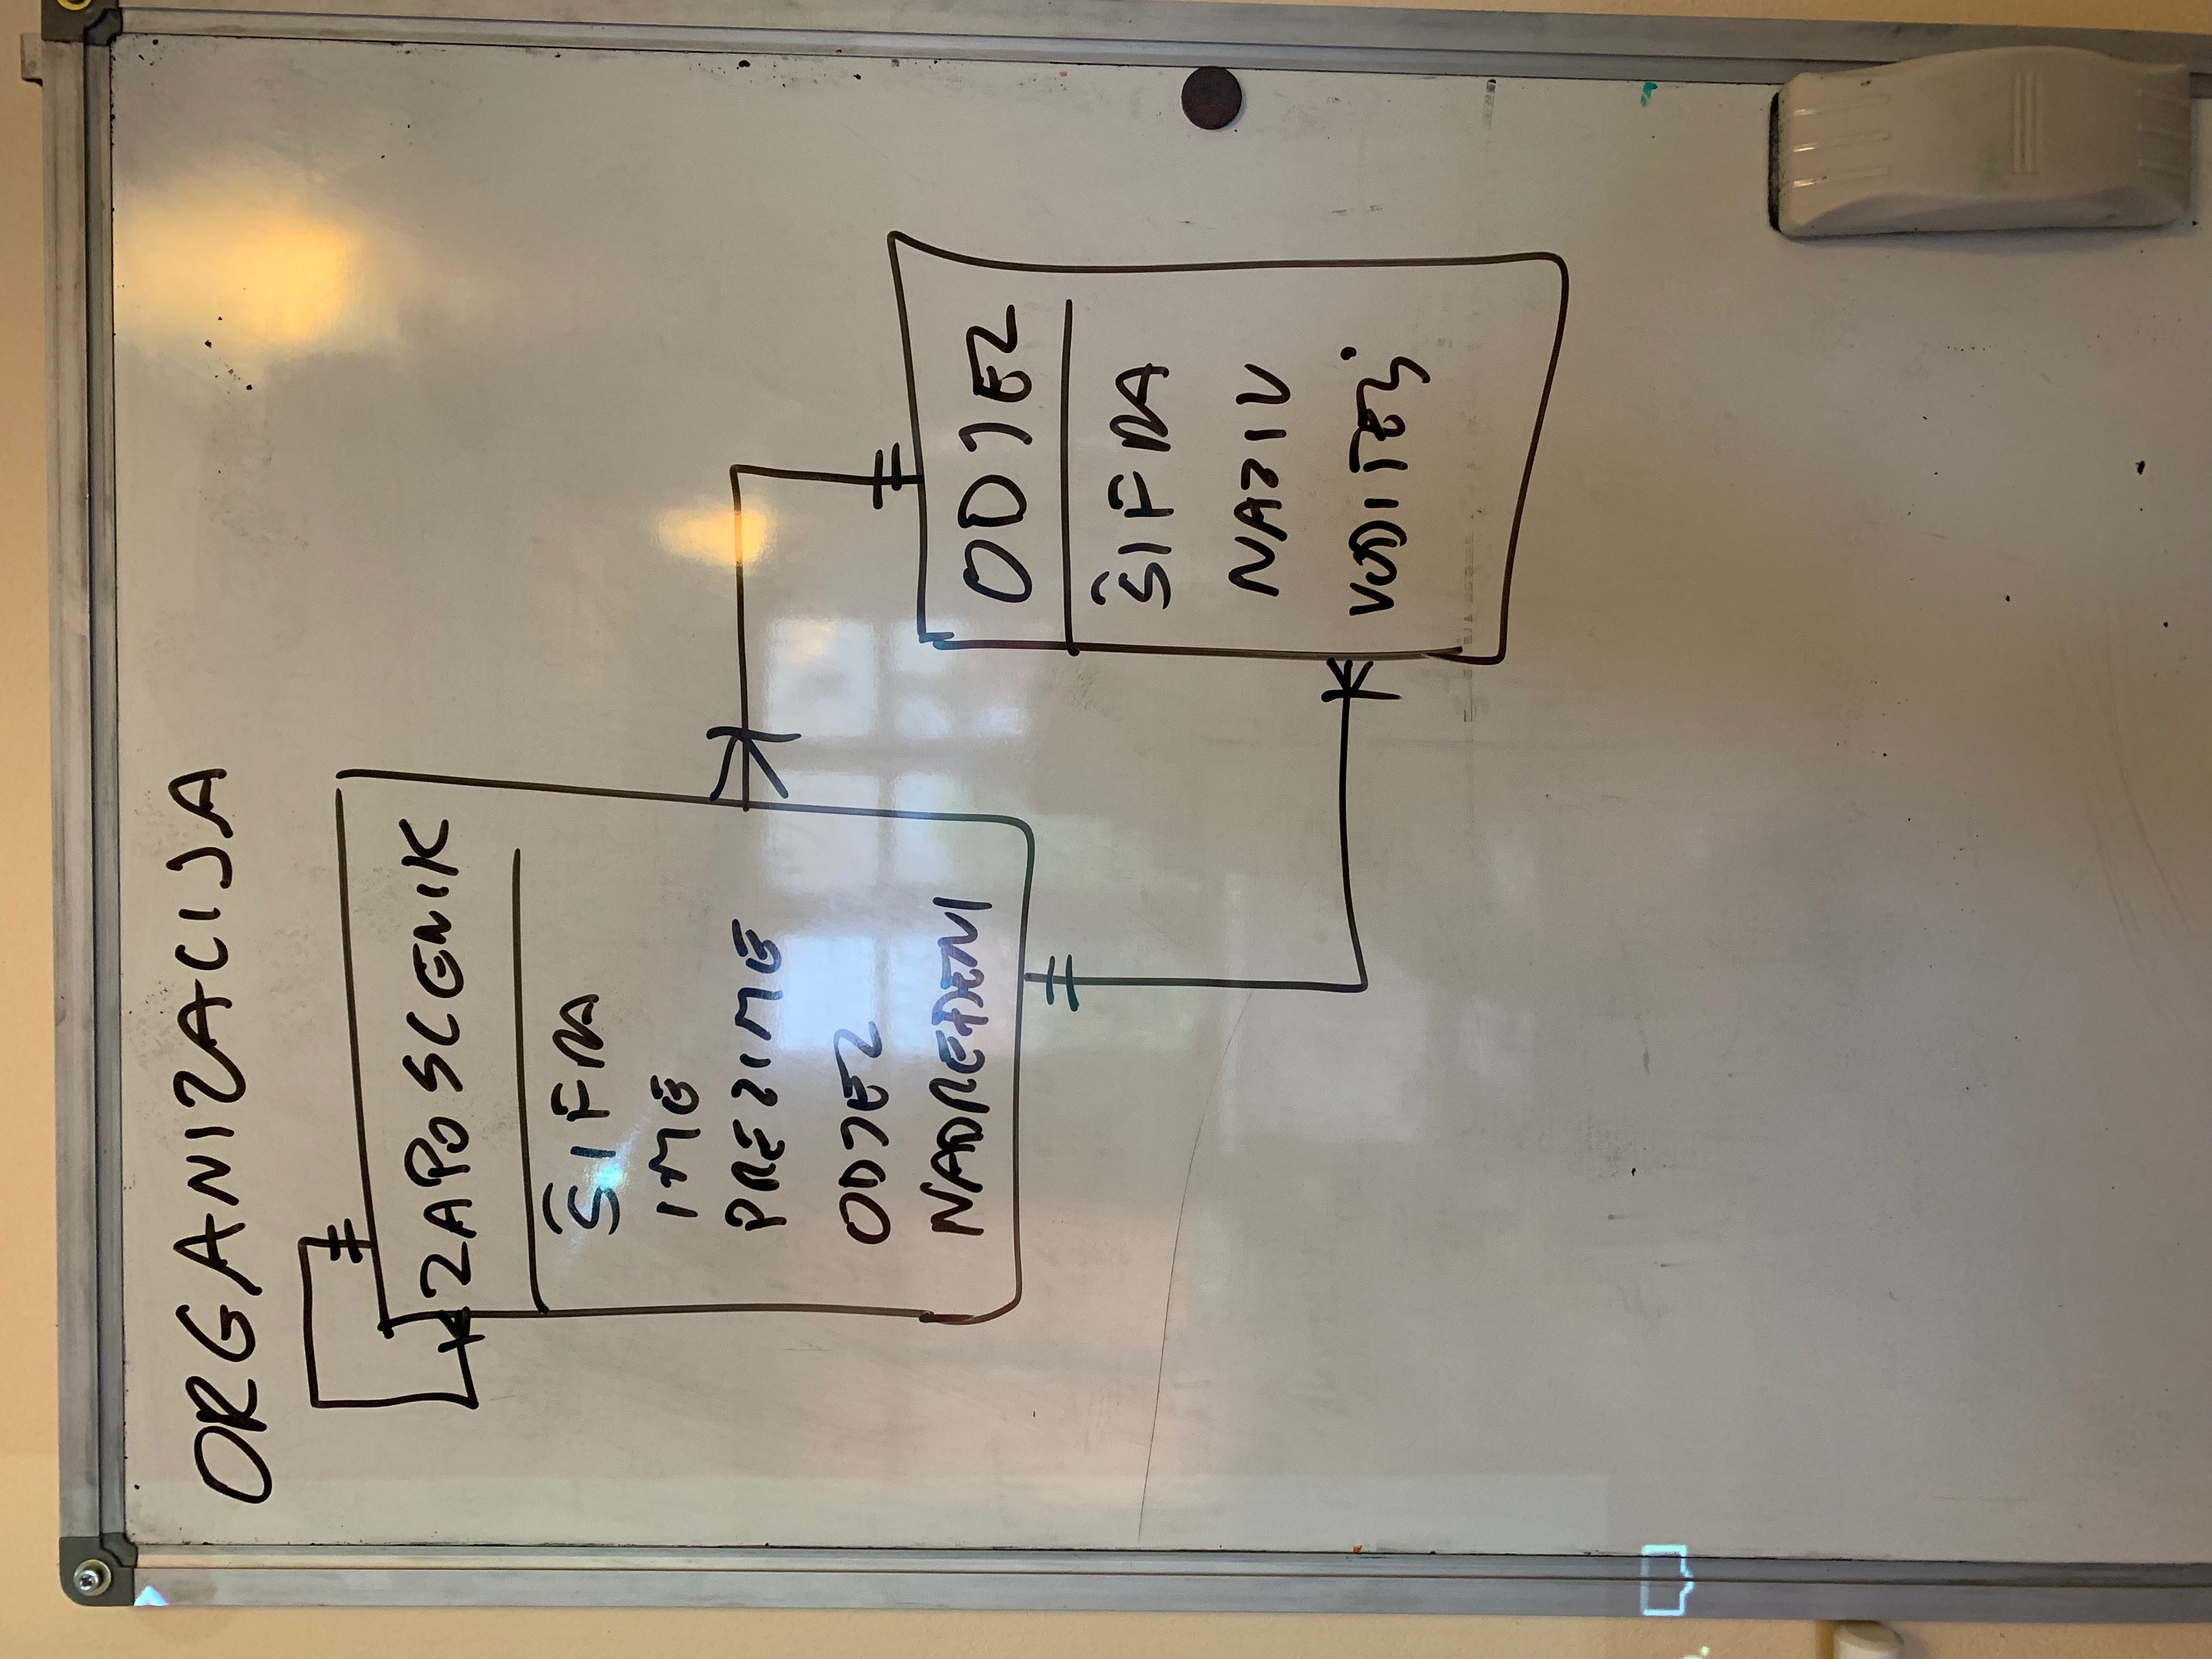 ORGANIZACIJA
ZAPOSCENIK
ŠIFRA
IME
PREZIME
ODJEL
NADREĐENI
ODJEL
ŠIFRA
NAZIV
VODITELJ